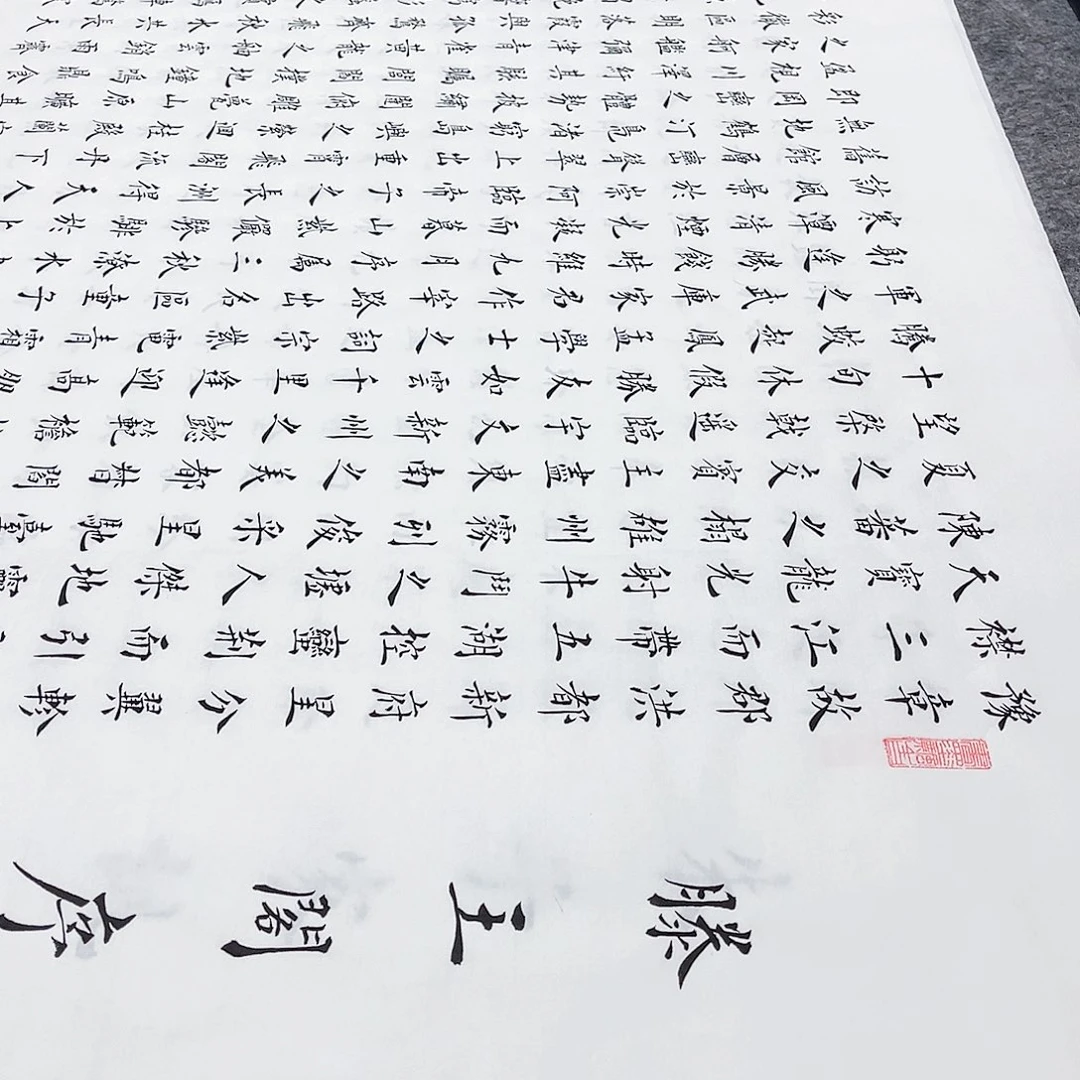 滕王閣序
豫章故郡洪都新府星分翼軫
襟三江而帶五湖控蠻荊而引
天寶龍光射牛鬥之墟人傑地靈
陳蕃之榻雄州霧列俊采星馳臺
夏之交賓主盡東南之美都督閻
望棨戟遥臨宇文新州之懿範襜
十旬休假勝友如雲千里逢迎高
騰蛟起鳳孟學士之詞宗紫電青霜
軍之武庫家君作宰路出名區童子
躬逢勝餞時維九月序屬三秋潦水
寒潭清煙光凝而暮山紫儼驂騑於上
訪風景於崇阿臨帝子之長洲得天人
舊館層巒聳翠上出重霄飛閣流丹下
無地鶴汀鳧渚窮島嶼之縈迴桂殿蘭
即岡巒之體勢披繡闥俯雕甍山原曠其
盈視川澤紆其駭矚閭閻撲地鐘鳴鼎食
之家舸艦彌津青雀黃龍之舳雲銷雨霽
彩徹區明落霞與孤鶩齊飛秋水共長天